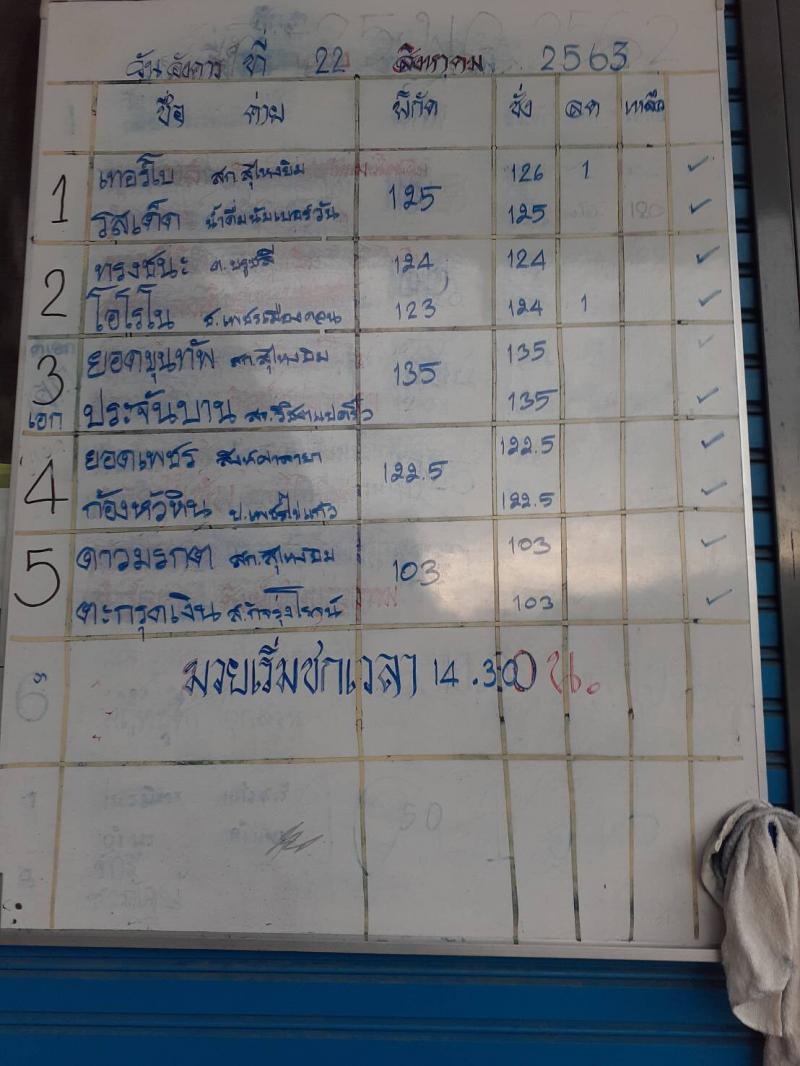 วันอังคาร ที่ 22 สิงหาคม 2563
ชื่อ ค่าย พิกัด ชั่ง ลด เหลือ
1 เทอร์โบ สก.สุไหงยิม 125 126 1
รสเด็ด น้ำดื่มนัมเบอร์วัน 125
2 ทรงชนะ 124 124
โอโรโน ช.เพชรเมืองคอน 123 124 1
3 ยอดขุนทัพ สก.สุไหงยิม 135 135
เอก ประจันบาน 135
4 ยอดเพชร 122.5 122.5
ก้องหัวหิน 122.5
5 ดาวมรกต สก.สุไหงยิม 103 103
ตะกรุดเงิน ส.กิจรุ่งโรจน์ 103
6
มวยเริ่มชกเวลา 14.30 น.
50